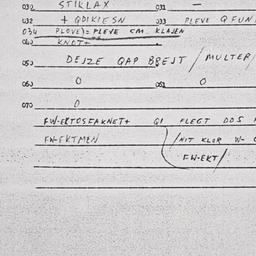 030 STIKLAX 031 —
032 + QDIKIESN 033 PLEVE QFUN
034 PLOVE)= PLEVE CM KLAJEN
040 KNOT+
050 DEJZE QAP BREJT / MULTER/
060 0 061 0
070 0
FW-EKTOSFAKNET+ QI FLEGT DOS
FW-EKTMEN /NIT KLOR W-
FW-EKT/